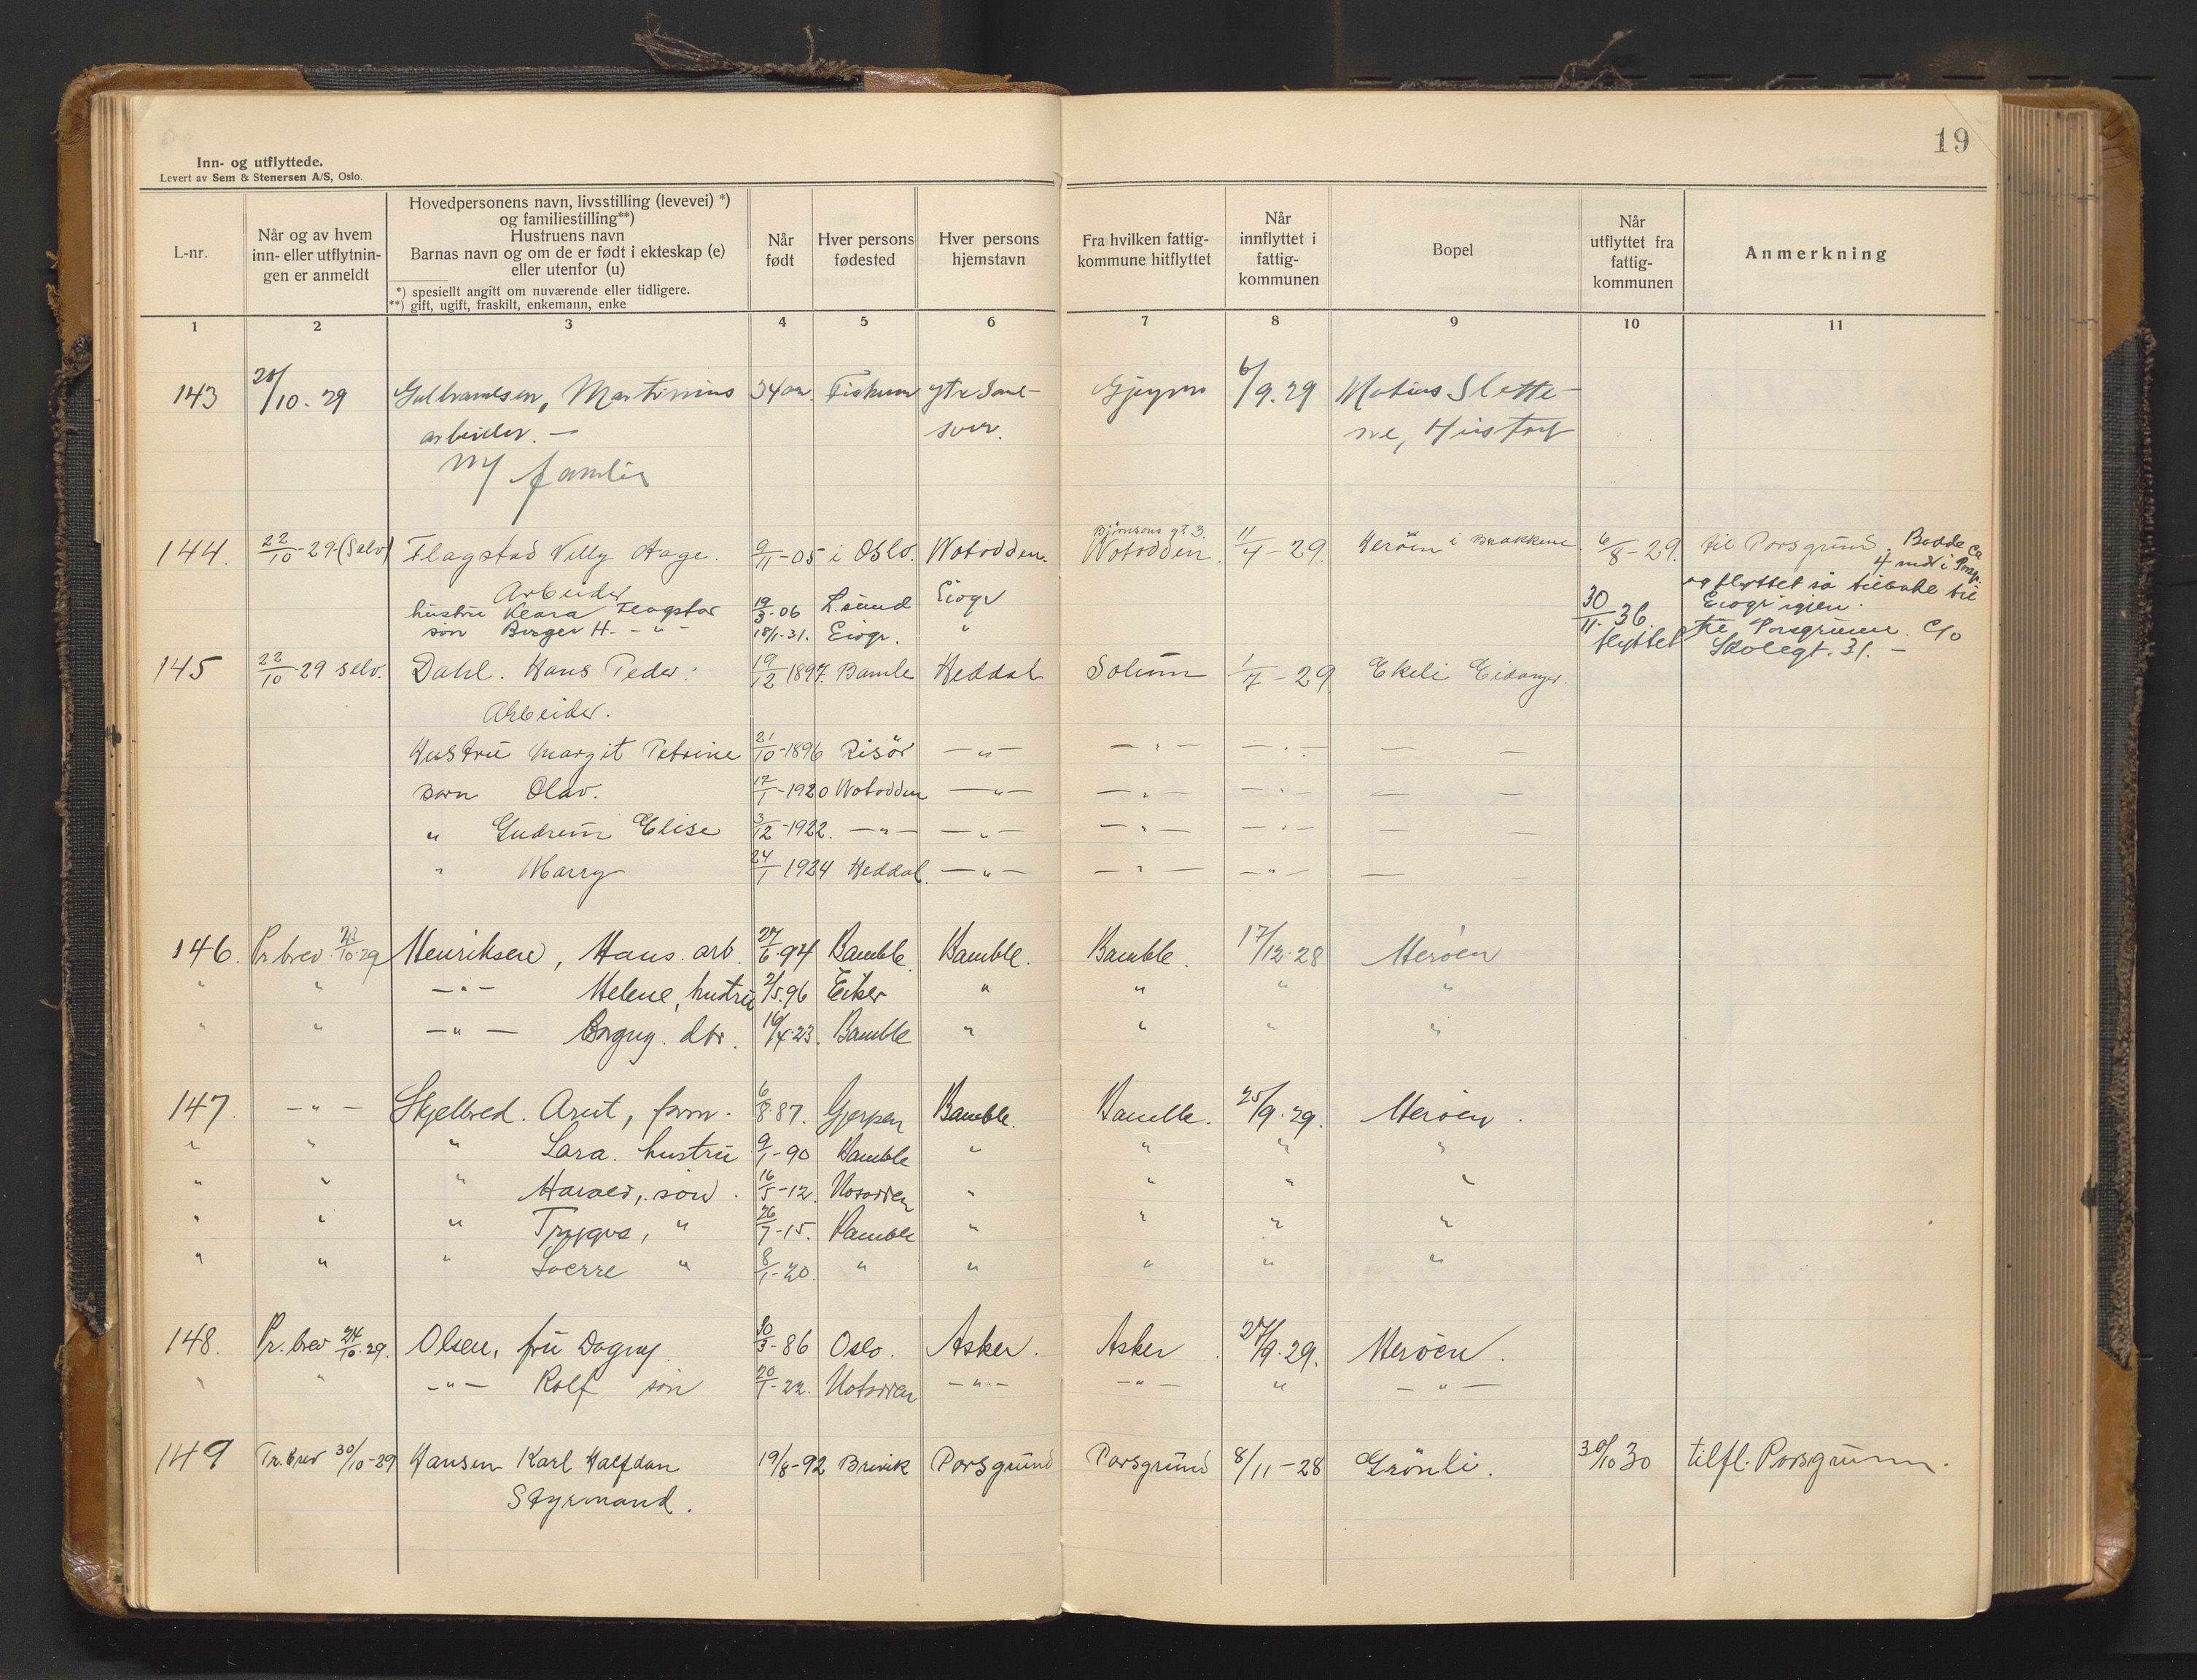 19
Inn- og utflyttede.
Levert av Sem & Stenersen A/S, Oslo.
L-nr.
Når og av hvem inn- eller utflytnin- gen er anmeldt
Hovedpersonens navn, livsstilling (levevei) *)
og familiestilling**)
Hustruens navn
Barnas navn og om de er født i ekteskap (e)
eller utenfor (u)
*) spesiellt angitt om nuværende eller tidligere.
**) gift, ugift, fraskilt, enkemann, enke
Når født
Hver persons fødested
Hver persons hjemstavn
Fra hvilken fattig- kommune hitflyttet
Når innflyttet i fattig- kommunen
Bopel
Når utflyttet fra fattig- kommunen
Anmerkning
1 2 3 4 5 6 7 8 9 10 11
143 /10. 29 Gulbrandsen, Martinius 34 år. Fiskum 6/9. 29 Slette-
arbeider. –
m/ familie
Bjørnsons gt 3.
144. 22/10-29. (Selv) Flagstad Villy Aage. 9/11-05 i Oslo. Notodden. Notodden 11/4-29. Herøen i Brakkene 6/8-29. til Porsgrund. Bodde ca
4 mdr i Porsg.
Arbeider Eidgr og flyttet så tilbake til
hustru Klara Flagstad 19/3-06 L.sund 30/11-36. Eidgr igjen.
søn Birger H. - " - 18/1-31. Eidgr. " flyttet til Porsgrunn. C/o
Skolegt. 31. –
145 22/10-29 selv. Dahl. Hans Peder. 19/12 1897. Bamle Heddal Solum 1/7-29 Ekeli Eidanger.
Arbeider.
Hustru Margit Petrine 21/10-1896 Risör — " — — " — — " — — —
Barn Olav. 17/1-1920 Notodden — " — — " — — " — — —
" Gudrun Elise 3/12-1922. — " — — " — — " — — " — — —
" Marry 24/1 1924 Heddal. — " — — " — — " — — —
146. Pr. brev /10-29 Henriksen, Hans. arb. 27/6-94 Bamble. Bamble. Bamble. 17/12-28 Herøen
" " — " — Helene, hustru 2/5.96 Eiker " " " "
" " — " — dtr. 16/4-23. Bamble " " " "
147. — " — Skjelbred. Arnt, form. 6/8-87. Gjerpen Bamble. Bamble. 25/9-29. Herøen.
" " " Lara. hustru 9/1-90 Bamble " " " "
" " " Harald, søn. 16/5-12. Notodden " " " "
" " " Trygve, " 26/7-15. Bamble " " " "
" " " Sverre " 8/1-20. " " " " "
148. Pr. brev 24/10-29. Olsen, fru Dagny. 30/3-86 Oslo. Asker. Asker. 27/9-29. Herøen.
" " — " — Rolf søn 20/1-22. Notodden — " — — " — " — " —
149 Pr. brev 30/10-29 Hansen Karl Halfdan 19/8-92 Brevik Porsgrund Porsgrund 8/11-28 Grönli. 30/10 30 tilfl. Porsgrunn.
Styrmand.